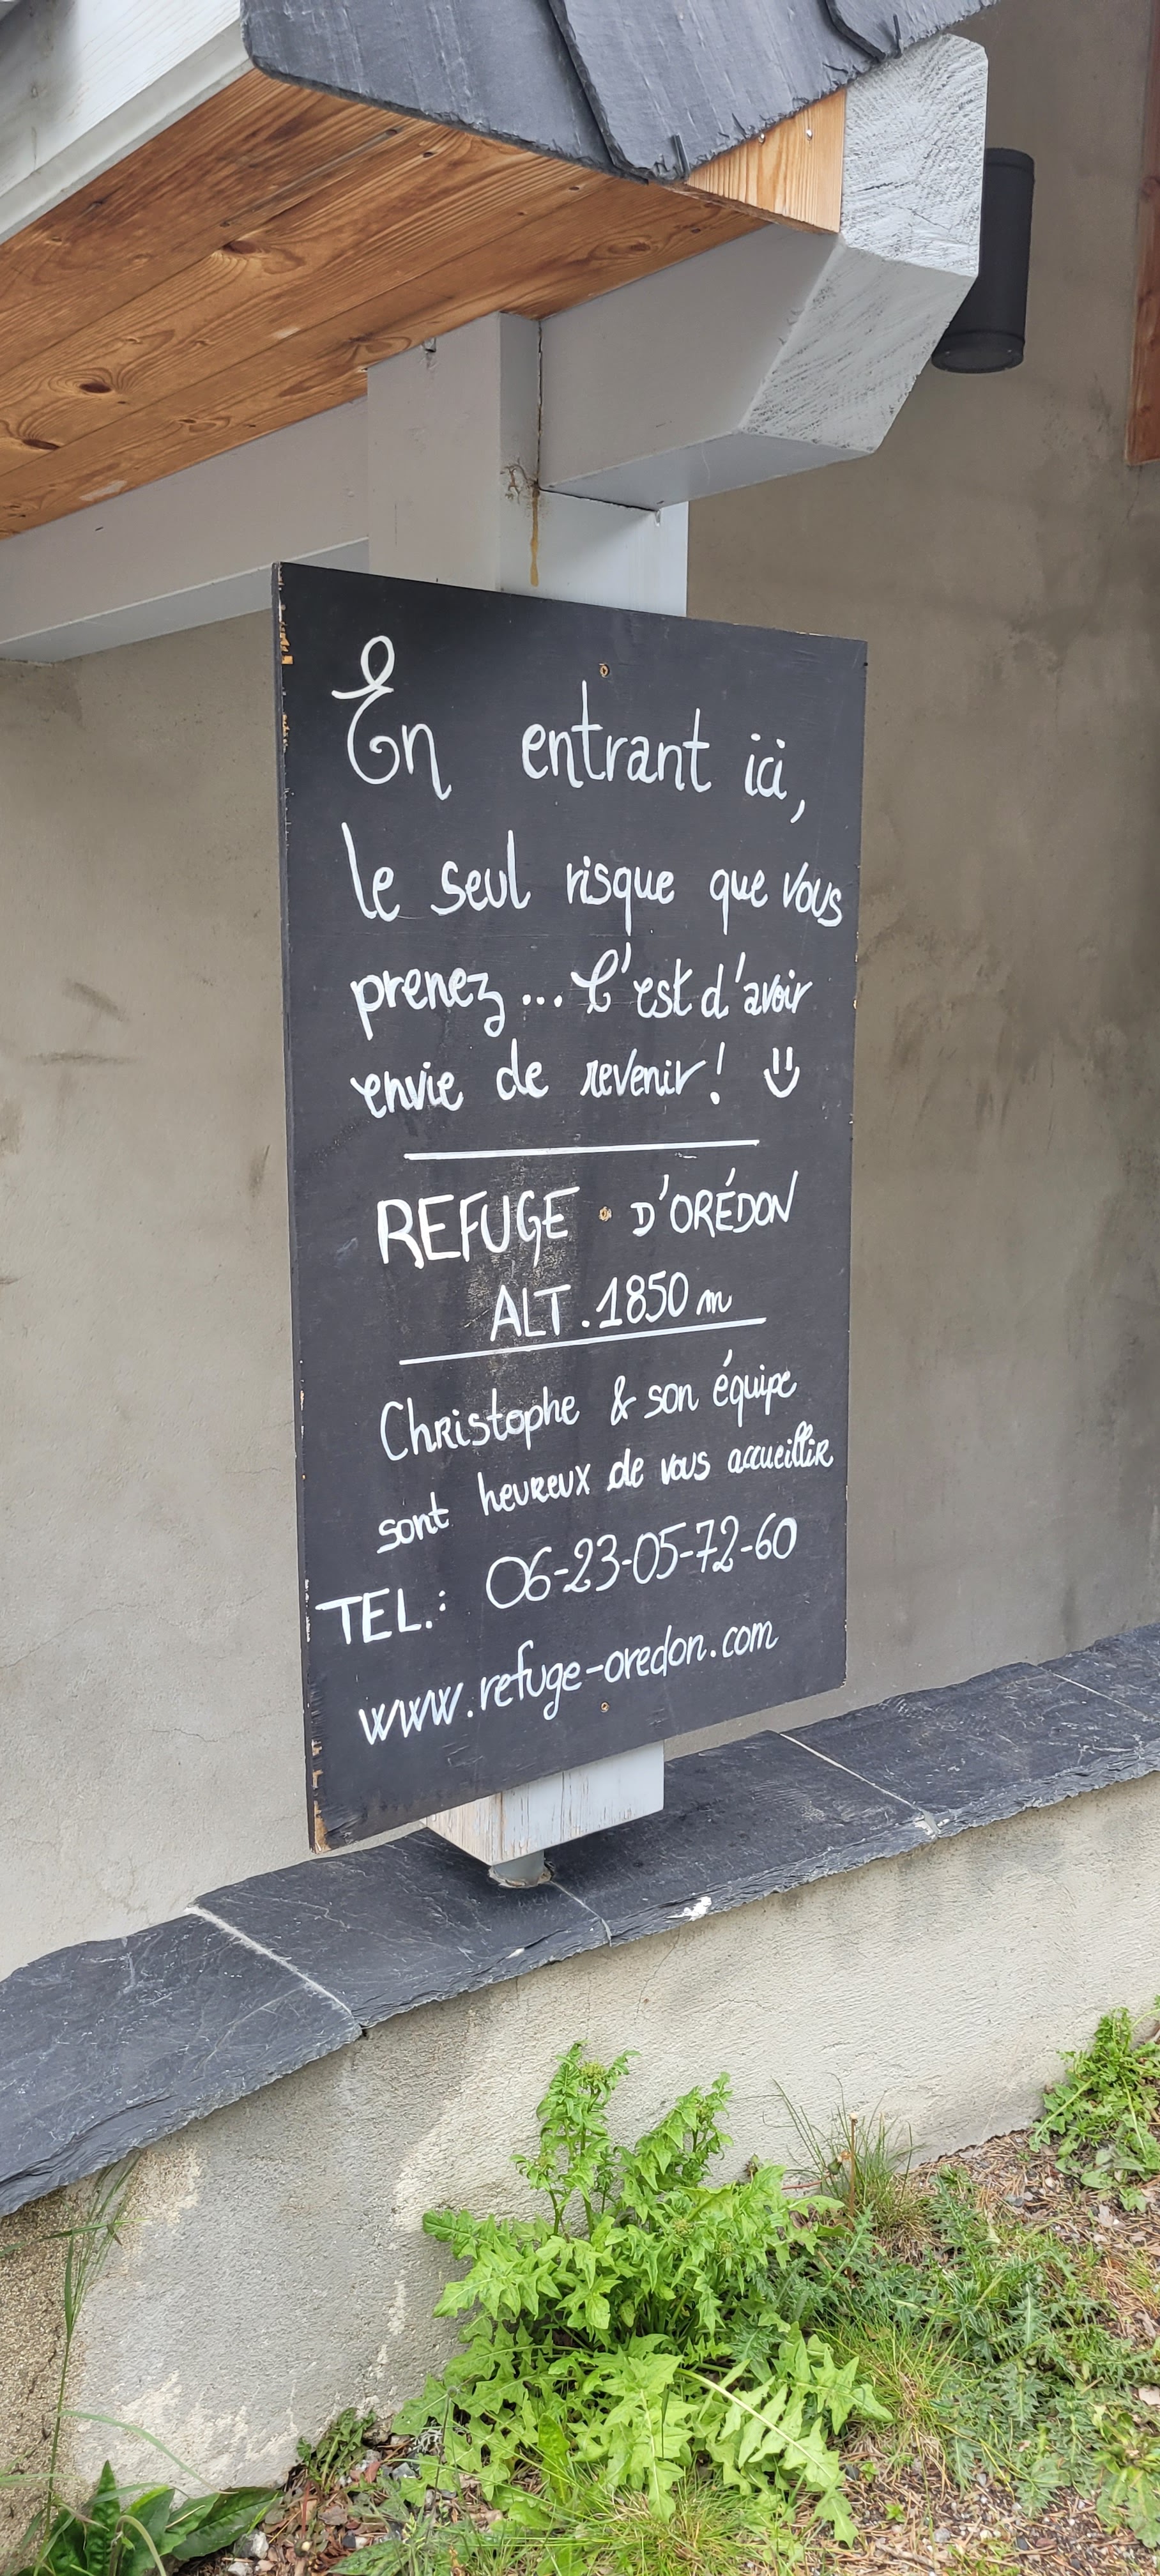 En entrant ici,
le seul risque que vous
prenez... C'est d'avoir
envie de revenir!
REFUGE D'ORÉDON
ALT. 1850 m
Christophe & son équipe
sont heureux de vous accueillir
TEL.: 06-23-05-72-60
www.refuge-oredon.com